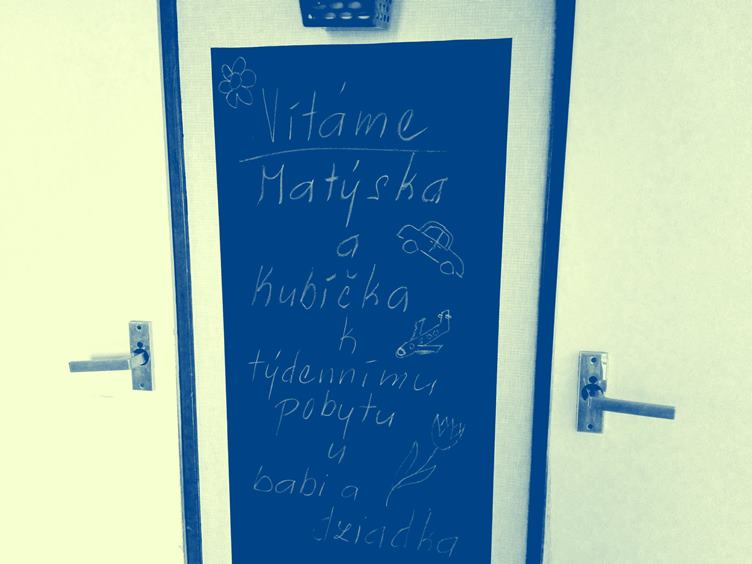 Vítáme
Matýska
a
Kubíčka
k
týdennímu
pobytu
u
babi a
dziadka